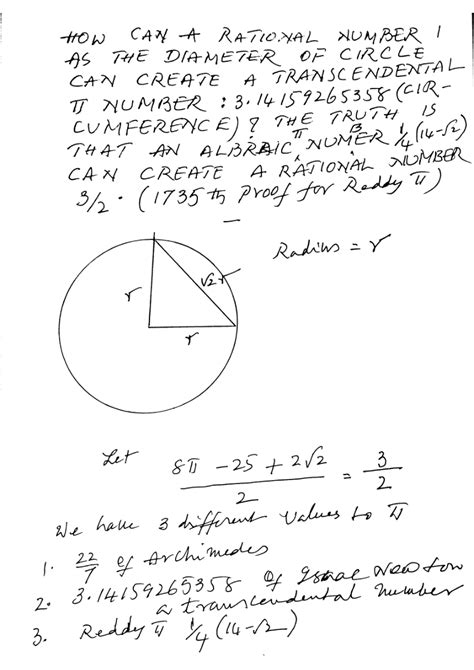 HOW CAN A RATIONAL NUMBER 1
AS THE DIAMETER OF CIRCLE
CAN CREATE A TRANSCENDENTAL
π NUMBER : 3.14159265358 (CIR-
CUMFERENCE)? THE TRUTH IS
THAT AN ALBRAIC π NUMBER 1/4 (14-√2)
CAN CREATE A RATIONAL NUMBER
3/2. (1735th Proof for Reddy π)
Radius = r
√2r
r
r
Let
8π - 25 + 2√2 / 2 = 3/2
We have 3 different values to π
1. 22/7 of Archimedes
2. 3.14159265358 of Isaac Newton
a transcendental number
3. Reddy π 1/4 (14-√2)